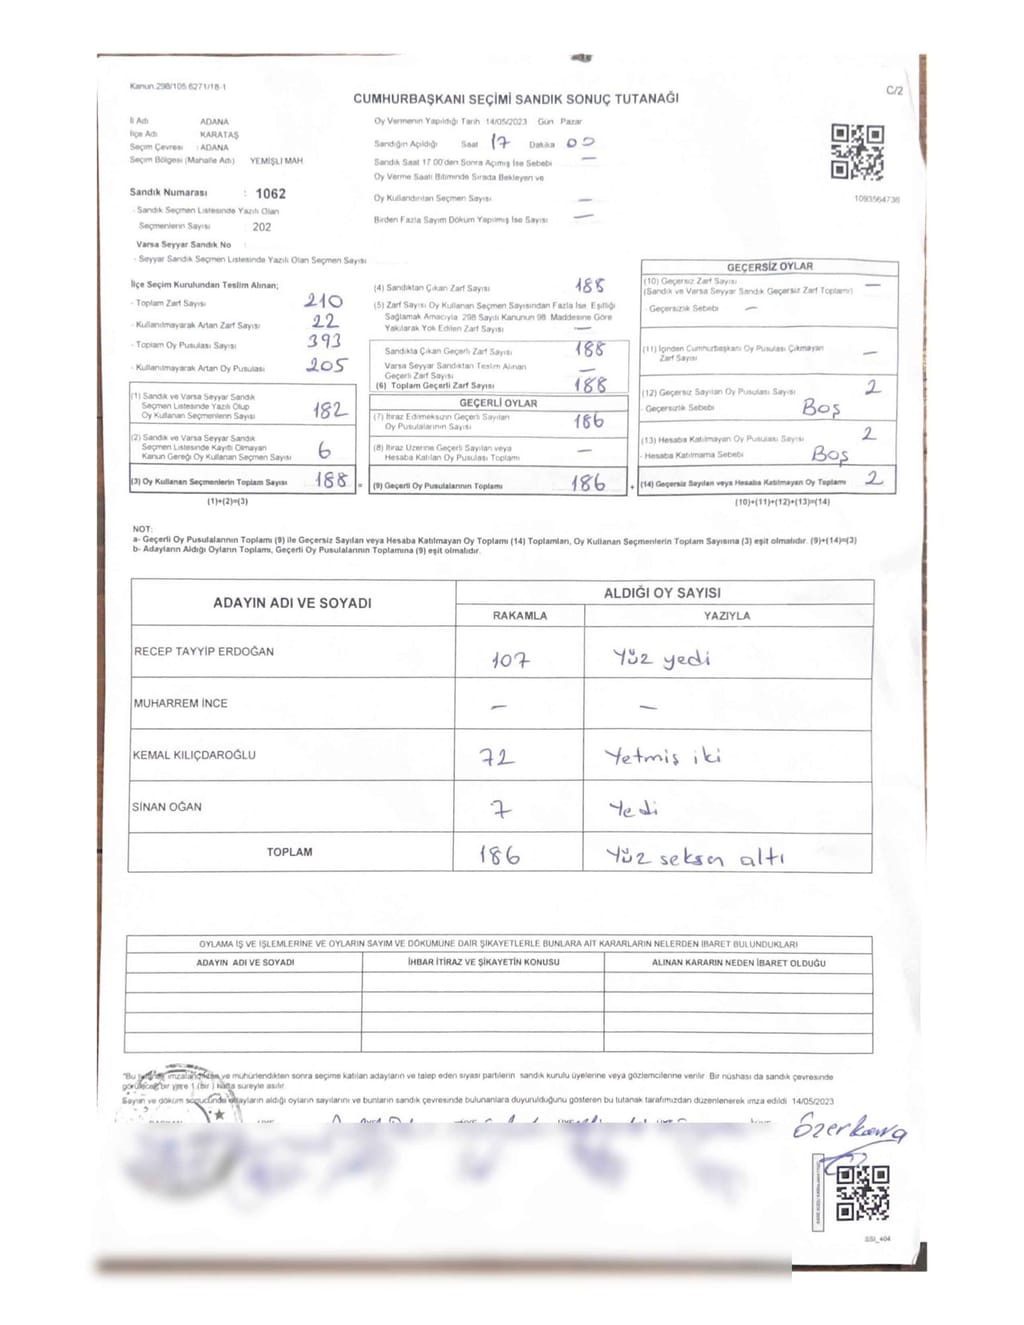 Kanun:298/105.6271/18-1
C/2
CUMHURBAŞKANI SEÇİMİ SANDIK SONUÇ TUTANAĞI
İl Adı ADANA
İlçe Adı KARATAŞ
Seçim Çevresi : ADANA
Seçim Bölgesi (Mahalle Adı) YEMİŞLİ MAH
Sandık Numarası : 1062
- Sandık Seçmen Listesinde Yazılı Olan
Seçmenlerin Sayısı 202
Varsa Seyyar Sandık No :
- Seyyar Sandık Seçmen Listesinde Yazılı Olan Seçmen Sayısı
Oy Vermenin Yapıldığı Tarih 14/05/2023 Gün Pazar
Sandığın Açıldığı Saat 17 Dakika 00
Sandık Saat 17 00'den Sonra Açımış İse Sebebi —
Oy Verme Saati Bitiminde Sırada Bekleyen ve
Oy Kullandırılan Seçmen Sayısı —
Birden Fazla Sayım Döküm Yapılmış İse Sayısı —
1093564736
İlçe Seçim Kurulundan Teslim Alınan;
- Toplam Zarf Sayısı 210
- Kullanılmayarak Artan Zarf Sayısı 22
- Toplam Oy Pusulası Sayısı 393
- Kullanılmayarak Artan Oy Pusulası 205
(1) Sandık ve Varsa Seyyar Sandık
Seçmen Listesinde Yazılı Olup
Oy Kullanan Seçmenlerin Sayısı 182
(2) Sandık ve Varsa Seyyar Sandık
Seçmen Listesinde Kayıtlı Olmayan
Kanun Gereği Oy Kullanan Seçmen Sayısı 6
(3) Oy Kullanan Seçmenlerin Toplam Sayısı 188 =
(1)+(2)=(3)
(4) Sandıktan Çıkan Zarf Sayısı 188
(5) Zarf Sayısı Oy Kullanan Seçmen Sayısından Fazla İse, Eşitliği
Sağlamak Amacıyla 298 Sayılı Kanunun 98. Maddesine Göre
Yakılarak Yok Edilen Zarf Sayısı —
Sandıkta Çıkan Geçerli Zarf Sayısı 188
Varsa Seyyar Sandıktan Teslim Alınan
Geçerli Zarf Sayısı —
(6) Toplam Geçerli Zarf Sayısı 188
GEÇERLİ OYLAR
(7) İtiraz Edimeksizin Geçerli Sayılan
Oy Pusulalarının Sayısı 186
(8) İtiraz Üzerine Geçerli Sayılan veya
Hesaba Katılan Oy Pusulası Toplamı —
(9) Geçerli Oy Pusulalarının Toplamı 186 +
GEÇERSİZ OYLAR
(10) Geçersiz Zarf Sayısı —
(Sandık ve Varsa Seyyar Sandık Geçersiz Zarf Toplamı)
- Geçersizlik Sebebi —
(11) İçinden Cumhurbaşkanı Oy Pusulası Çıkmayan
Zarf Sayısı —
(12) Geçersiz Sayılan Oy Pusulası Sayısı 2
- Geçersizlik Sebebi Boş
(13) Hesaba Katılmayan Oy Pusulası Sayısı 2
- Hesaba Katılmama Sebebi Boş
(14) Geçersiz Sayılan veya Hesaba Katılmayan Oy Toplamı 2
(10)+(11)+(12)+(13)=(14)
NOT:
a- Geçerli Oy Pusulalarının Toplamı (9) ile Geçersiz Sayılan veya Hesaba Katılmayan Oy Toplamı (14) Toplamları, Oy Kullanan Seçmenlerin Toplam Sayısına (3) eşit olmalıdır. (9)+(14)=(3)
b- Adayların Aldığı Oyların Toplamı, Geçerli Oy Pusulalarının Toplamına (9) eşit olmalıdır.
ADAYIN ADI VE SOYADI
ALDIĞI OY SAYISI
RAKAMLA YAZIYLA
RECEP TAYYİP ERDOĞAN 107 Yüz yedi
MUHARREM İNCE — —
KEMAL KILIÇDAROĞLU 72 Yetmiş iki
SİNAN OĞAN 7 Yedi
TOPLAM 186 Yüz seksen altı
OYLAMA İŞ VE İŞLEMLERİNE VE OYLARIN SAYIM VE DÖKÜMÜNE DAİR ŞİKAYETLERLE BUNLARA AİT KARARLARIN NELERDEN İBARET BULUNDUKLARI
ADAYIN ADI VE SOYADI İHBAR İTİRAZ VE ŞİKAYETİN KONUSU ALINAN KARARIN NEDEN İBARET OLDUĞU
"Bu ve mühürlendikten sonra seçime katılan adayların ve talep eden siyasi partilerin sandık kurulu üyelerine veya gözlemcilerine verilir. Bir nüshası da sandık çevresinde
görülecek bir yere 1 (bir) hafta süreyle asılır.
Sayım ve döküm sonucunda adayların aldığı oyların sayılarını ve bunların sandık çevresinde bulunanlara duyurulduğunu gösteren bu tutanak tarafımızdan düzenlenerek imza edildi 14/05/2023
SSI_404